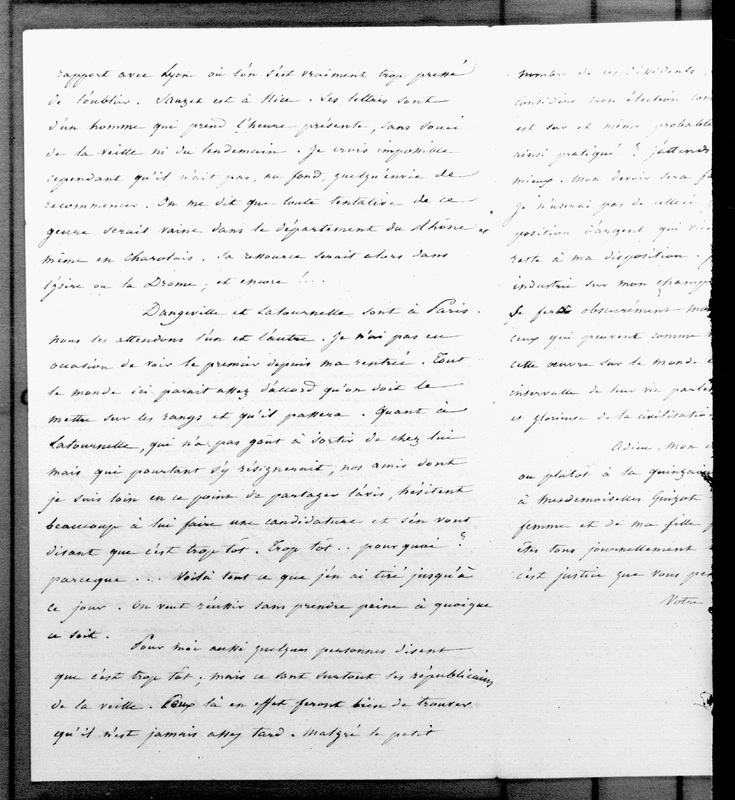 rapport avec Lyon où l'on s'est vraiment trop pressé
de l'oublier. Sauzet est à Nice. Ses lettres sont
d'un homme qui prend l'heure présente, sans souci
de la veille ni du lendemain. Je crois impossible
cependant qu'il n'ait pas, au fond, quelqu'envie de
recommencer. On me dit que toute tentative de ce
genre serait vaine dans le département du Rhône et
même en Charolais. Sa ressource serait alors dans
l'ysère ou la Drome; et encore!...
Dangeville et Latournelle sont à Paris.
nous les attendons l'un et l'autre. Je n'ai pas eu
occasion de voir le premier depuis ma rentrée. Tout
le monde ici parait assez d'accord qu'on doit le
mettre sur les rangs et qu'il passera. Quant à
Latournelle, qui n'a pas goût à sortir de chez lui
mais qui pourtant s'y résignerait, nos amis dont
je suis loin en ce point de partager l'avis, hésitent
beaucoup à lui faire une candidature et s'en vont
disant que c'est trop tôt. Trop tôt.. pourquoi?
parceque ... Voilà tout ce que j'en ai tiré jusqu'à
ce jour. On veut réussir sans prendre peine à quoique
ce soit.
Pour moi aussi quelques personnes disent
que c'est trop tôt; mais ce sont surtout les républicains
de la veille. Ceux là en effet feront bien de trouver
qu'il n'est jamais assez tard. Malgré le petit
nombre de ces dissidents,
considère mon élection com
est sur et même probable
ainsi pratiqué? J'attends
mieux. Mon devoir sera
Je n'userai pas de celleci
position d'argent qui
reste à ma disposition.
industrie sur mon champ
Se obscurément
ceux qui peuvent comme
cette œuvre sur le monde
intervalle de leur vie
et glorieuse de la civilisation
Adieu, mon
ou plutôt à la quinzaine
à Mesdemoiselles Guizot
femme et de ma fille
êtes tous journellement
c'est justice que vous
Votre